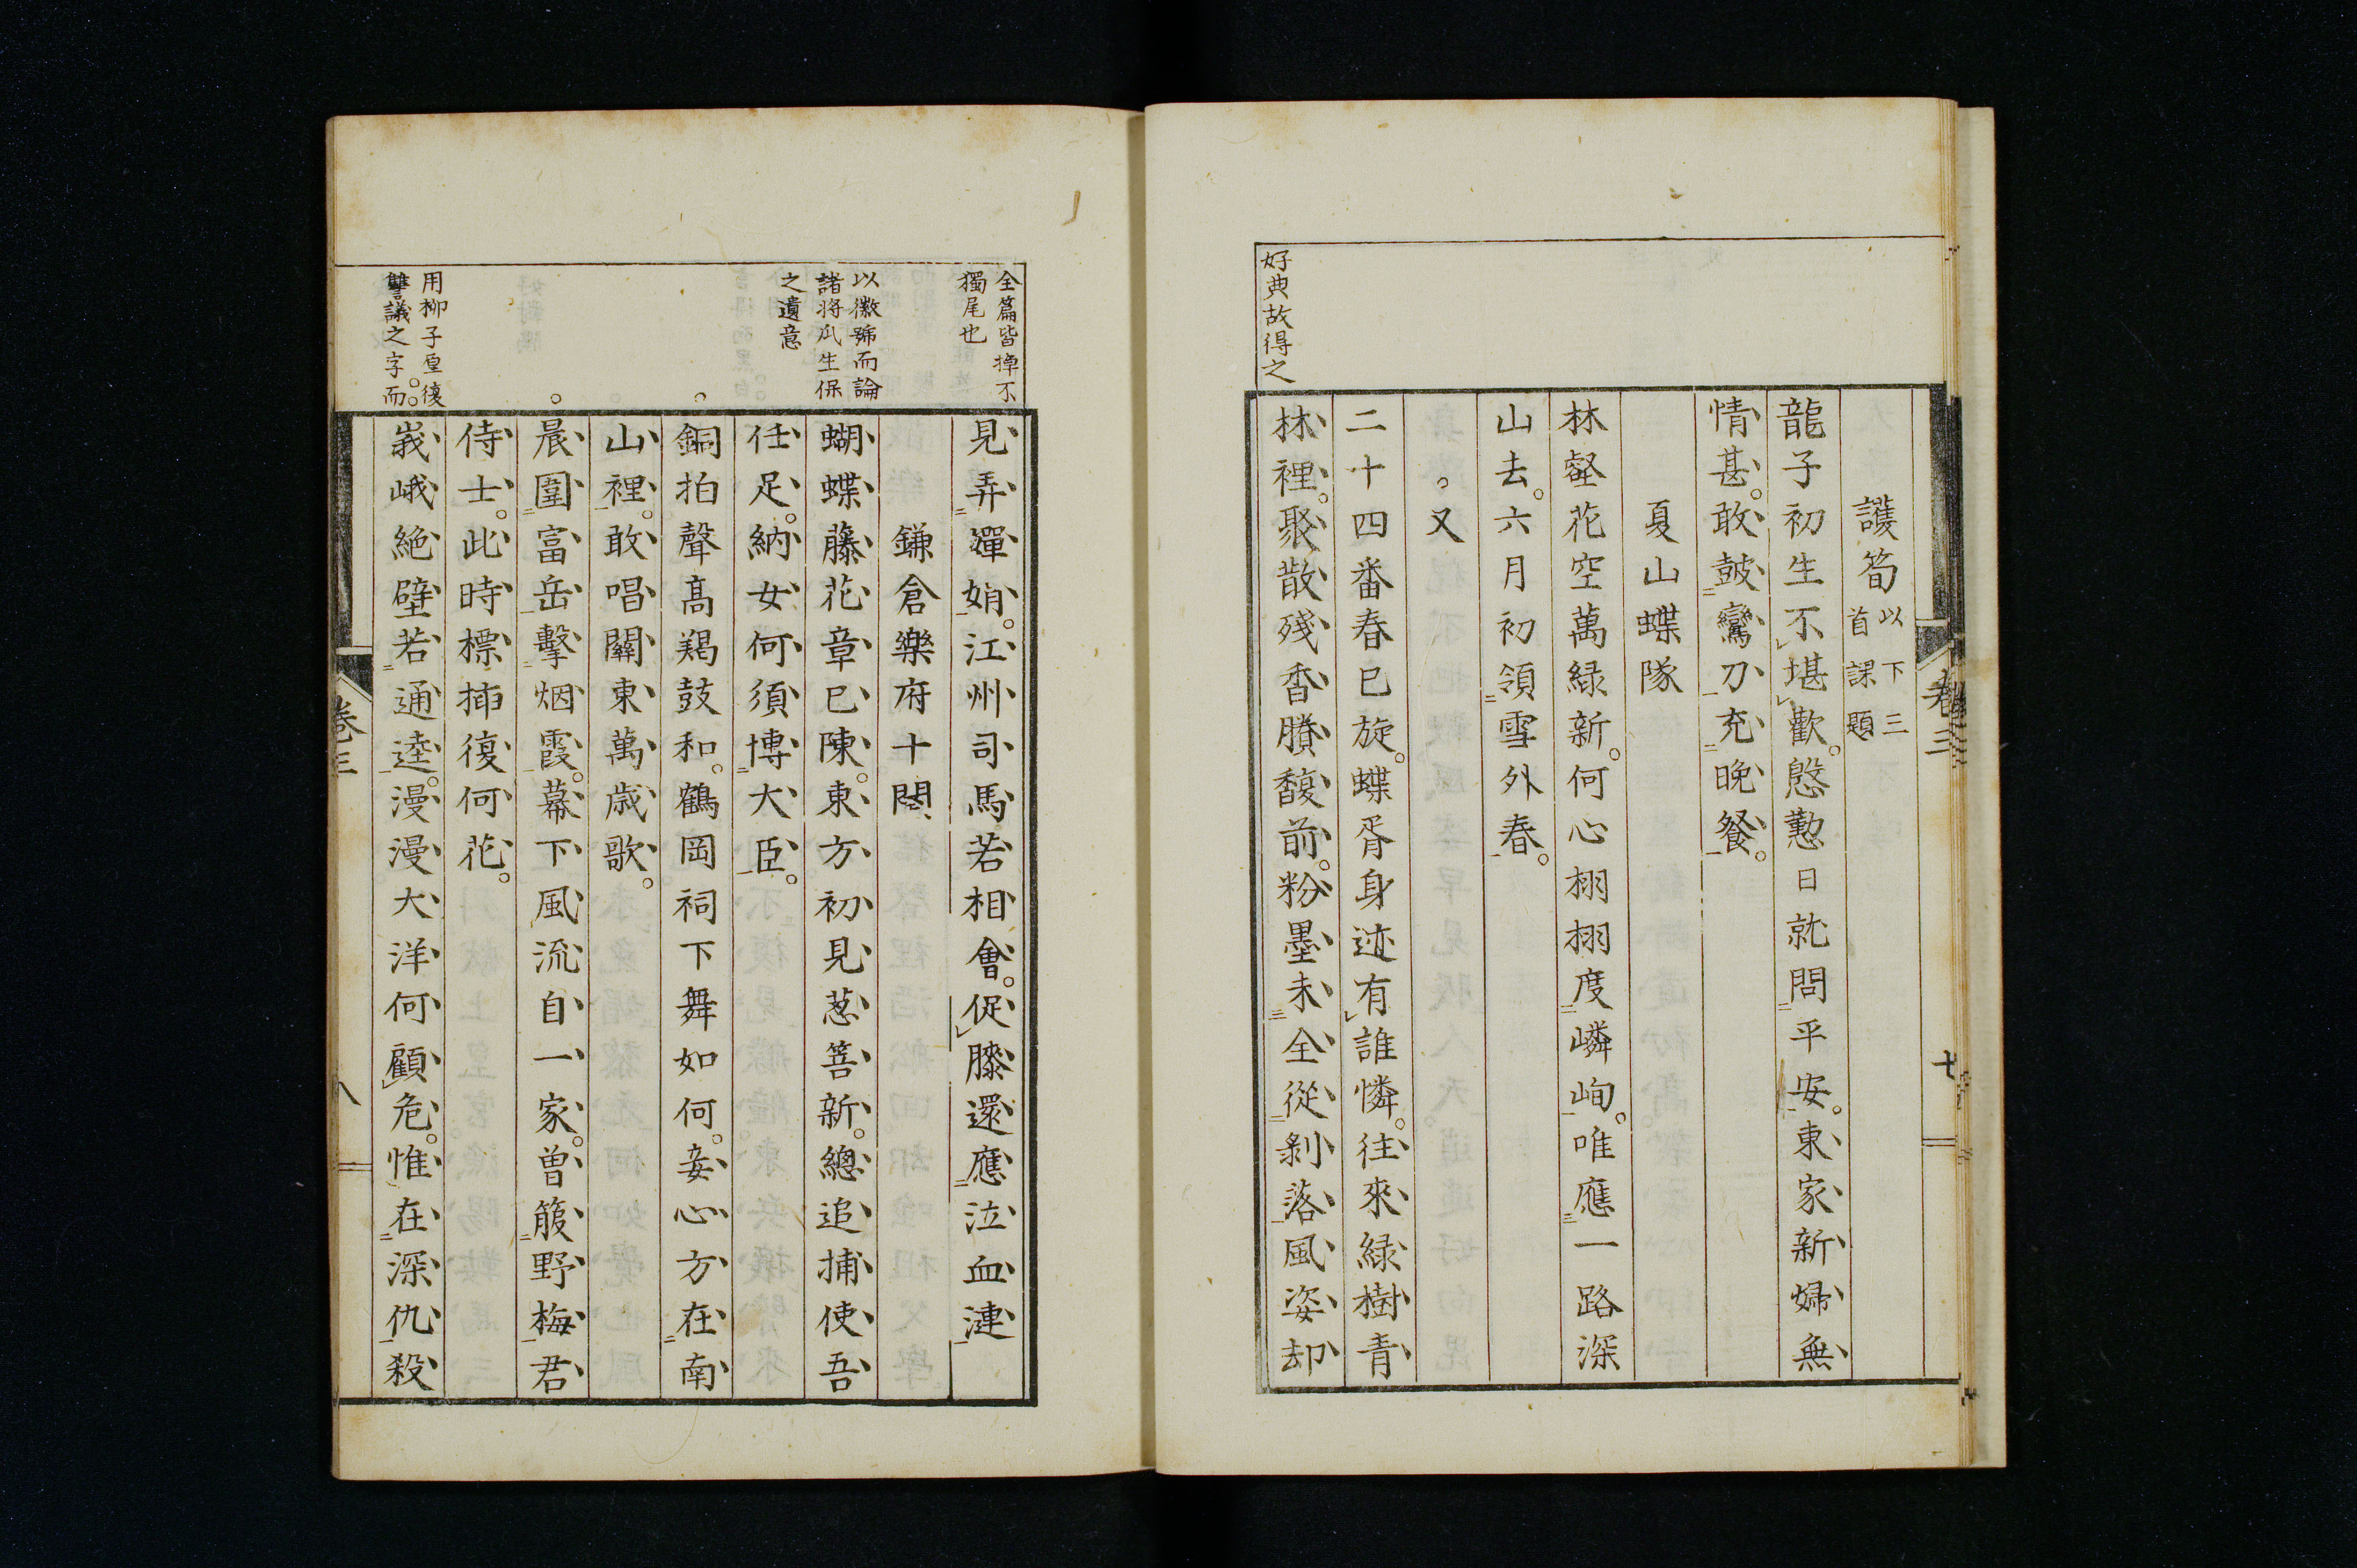 護筍 以下三首課題
龍子初生不堪歡。慇懃日就問平安。東家新婦無
情甚。敢鼓鸞刀充晚餐。
夏山蝶隊
林壑花空萬緑新。何心栩栩度嶙峋。唯應一路深
山去。六月初領雪外春。
又
二十四番春已旋。蝶胥身迹有誰憐。往來緑樹青
林裡。聚散殘香賸馥前。粉墨未全從剝落風姿却
好典故得之
卷三
七
全篇皆掉不
獨尾也
見弄嬋娟。江州司馬若相會。促膝還應泣血漣
鎌倉樂府十闋
以徽號而論
諸將瓜生保
之遺意
蝴蝶藤花章已陳。東方初見葱簩新。總追捕使吾
任足。納女何須博大臣。
銅拍聲高羯鼓和。鶴岡祠下舞如何。妾心方在南
山裡。敢唱關東萬歳歌。
晨圍富岳擊烟霞。幕下風流自一家。曾箙野梅君
侍士。此時標揷復何花。
用柳子厚復
讐議之字。而。
峩峨絶壁若通逵。漫漫大洋何顧危。惟在深仇殺
卷三
八